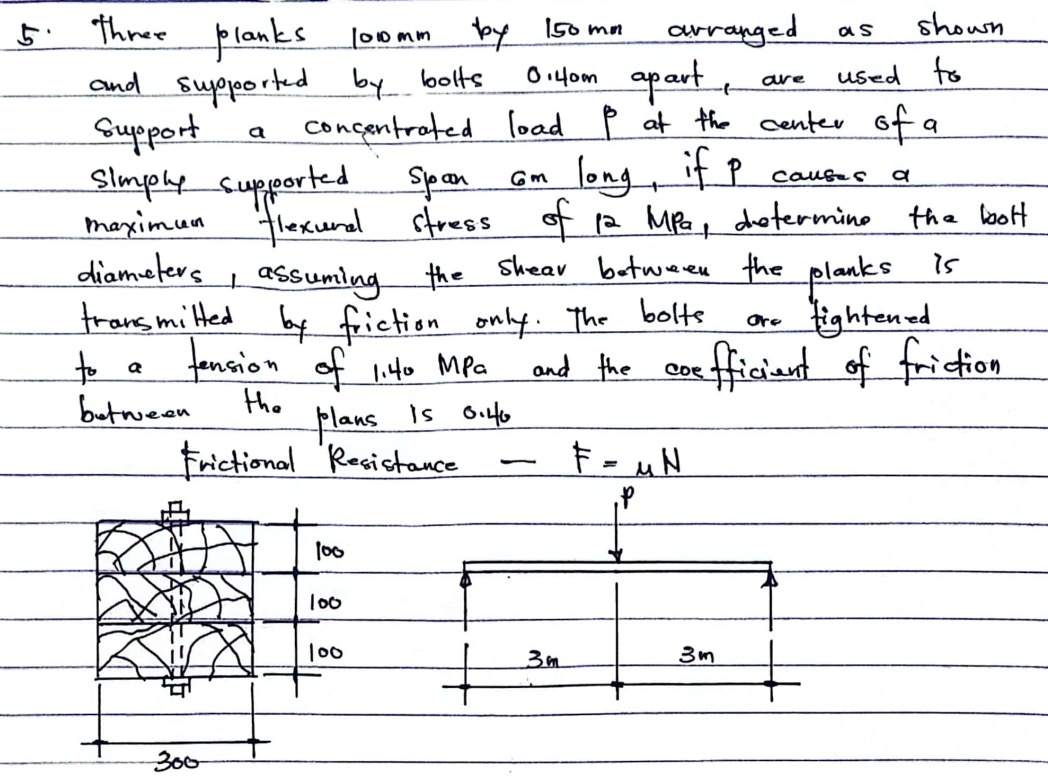 5. Three planks 100mm by 150 mm arranged as shown
and supported by bolts 0.40m apart, are used to
Support a concentrated load P at the center of a
Simply supported Span 6m long, if P causes a
maximum flexural stress of 12 MPa, determine the bolt
diameters, assuming the shear between the planks is
transmitted by friction only. The bolts are tightened
to a tension of 1.40 MPa and the coefficient of friction
between the plans is 0.40
Frictional Resistance — F = μN
P
100
100
100
3m 3m
300